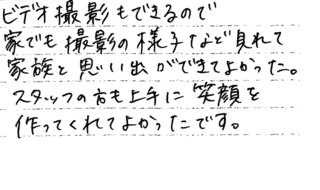 ビデオ撮影もできるので
家でも撮影の様子など見れて
家族と思い出ができてよかった。
スタッフの方も上手に笑顔を
作ってくれてよかったです。